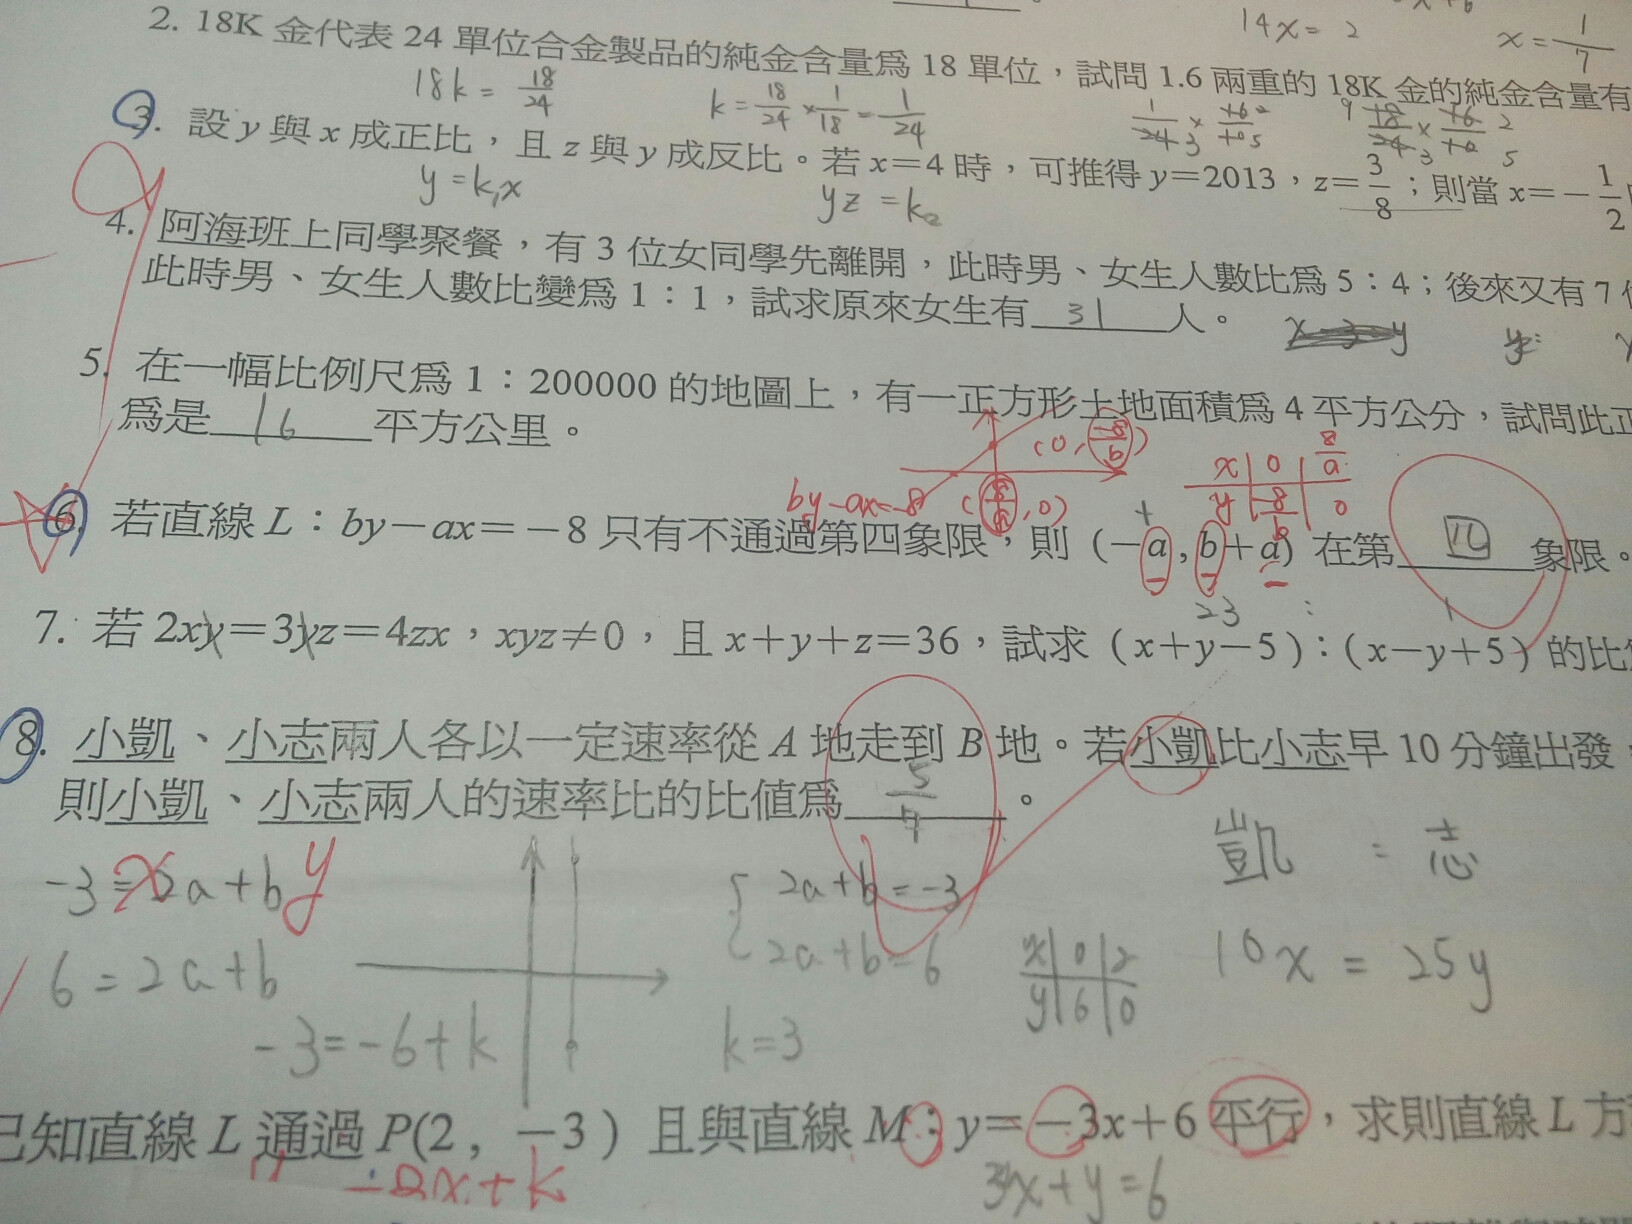 14x = 2
x = 1/7
2. 18K 金代表 24 單位合金製品的純金含量為 18 單位，試問 1.6 兩重的 18K 金的純金含量有
18k = 18/24
k = 18/24 × 1/18 = 1/24
3. 設 y 與 x 成正比，且 z 與 y 成反比。若 x＝4 時，可推得 y＝2013，z＝3/8；則當 x＝－1/2
y = k₁x
yz = k₂
4. 阿海班上同學聚餐，有 3 位女同學先離開，此時男、女生人數比為 5：4；後來又有 7
此時男、女生人數比變為 1：1，試求原來女生有 31 人。
5. 在一幅比例尺為 1：200000 的地圖上，有一正方形土地面積為 4 平方公分，試問此正
為是 16 平方公里。
by-ax=-8
x 0 8/a
y -8/b 0
6. 若直線 L：by－ax＝－8 只有不通過第四象限，則（－a , b＋a）在第 四 象限。
23 : 1
7. 若 2xy＝3yz＝4zx，xyz≠0，且 x＋y＋z＝36，試求（x＋y－5）：（x－y＋5）的比
8. 小凱、小志兩人各以一定速率從 A 地走到 B 地。若小凱比小志早 10 分鐘出發，
則小凱、小志兩人的速率比的比值為 5/7 。
凱 = 志
-3 = 2a+b
2a+b = -3
6 = 2a+b
2a+b = 6
x 0 2
y 6 0
10x = 25y
-3 = -6+k
k = 3
已知直線 L 通過 P(2，－3）且與直線 M：y＝－3x＋6 平行，求則直線 L 方
3x+y=6